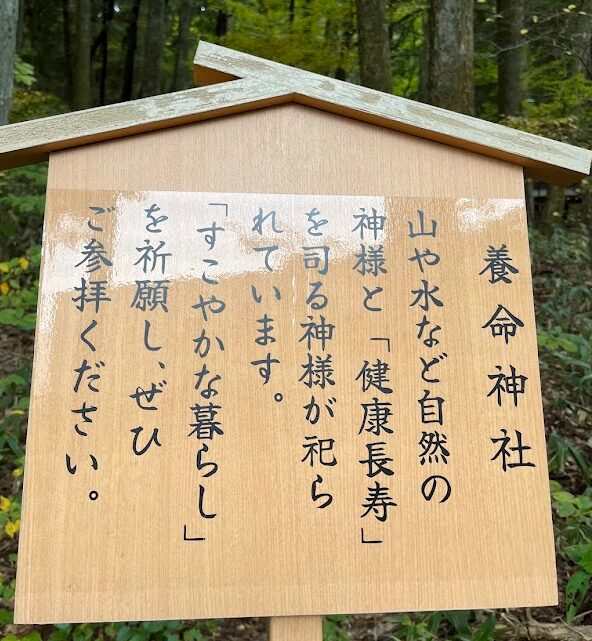 養命神社
山や水など自然の
神様と「健康長寿」
を司る神様が祀ら
れています。
「すこやかな暮らし」
を祈願し、ぜひ
ご参拝ください。